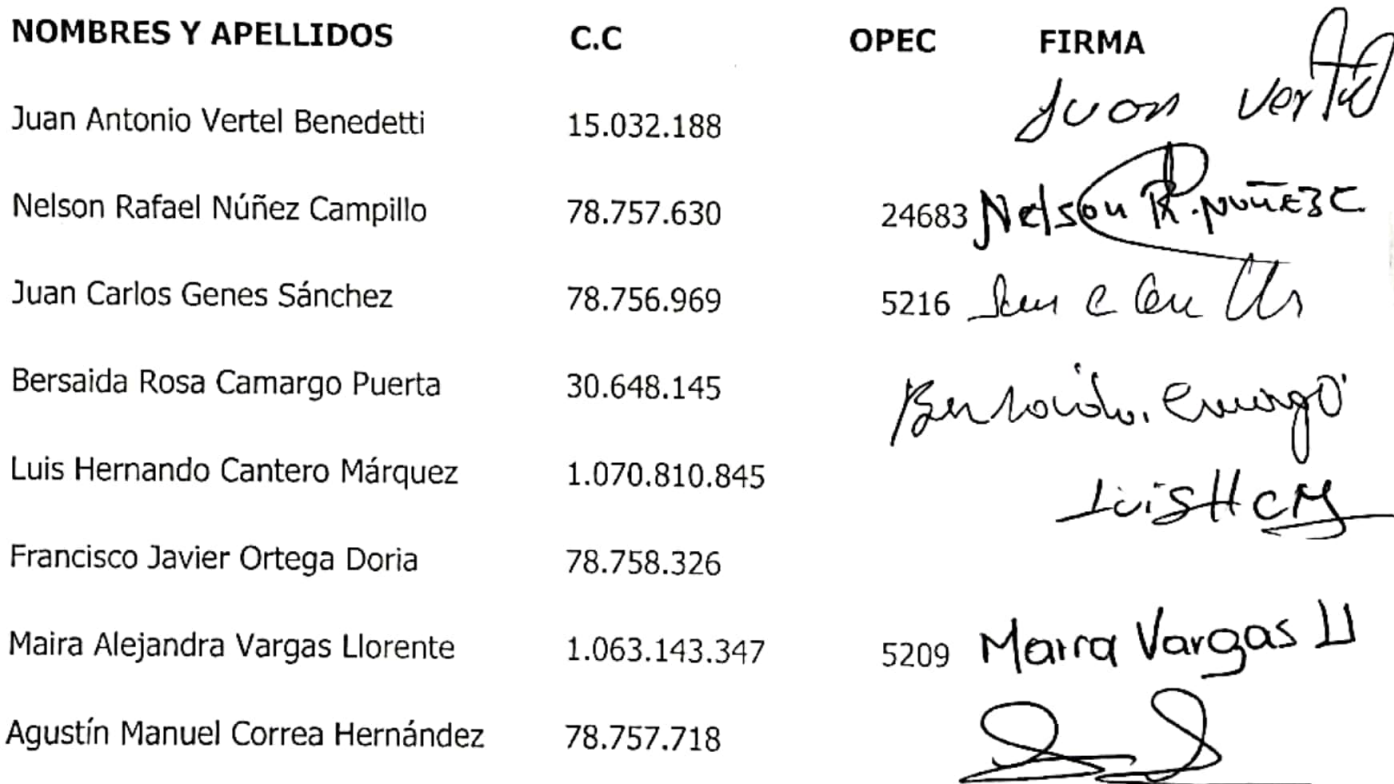 NOMBRES Y APELLIDOS C.C OPEC FIRMA
Juan Antonio Vertel Benedetti 15.032.188 Juan Vertel
Nelson Rafael Núñez Campillo 78.757.630 24683 Nelson R. NUÑEZ C
Juan Carlos Genes Sánchez 78.756.969 5216
Bersaida Rosa Camargo Puerta 30.648.145 Bersaida Camargo
Luis Hernando Cantero Márquez 1.070.810.845 Luis H C M
Francisco Javier Ortega Doria 78.758.326
Maira Alejandra Vargas Llorente 1.063.143.347 5209 Maira Vargas Ll
Agustín Manuel Correa Hernández 78.757.718